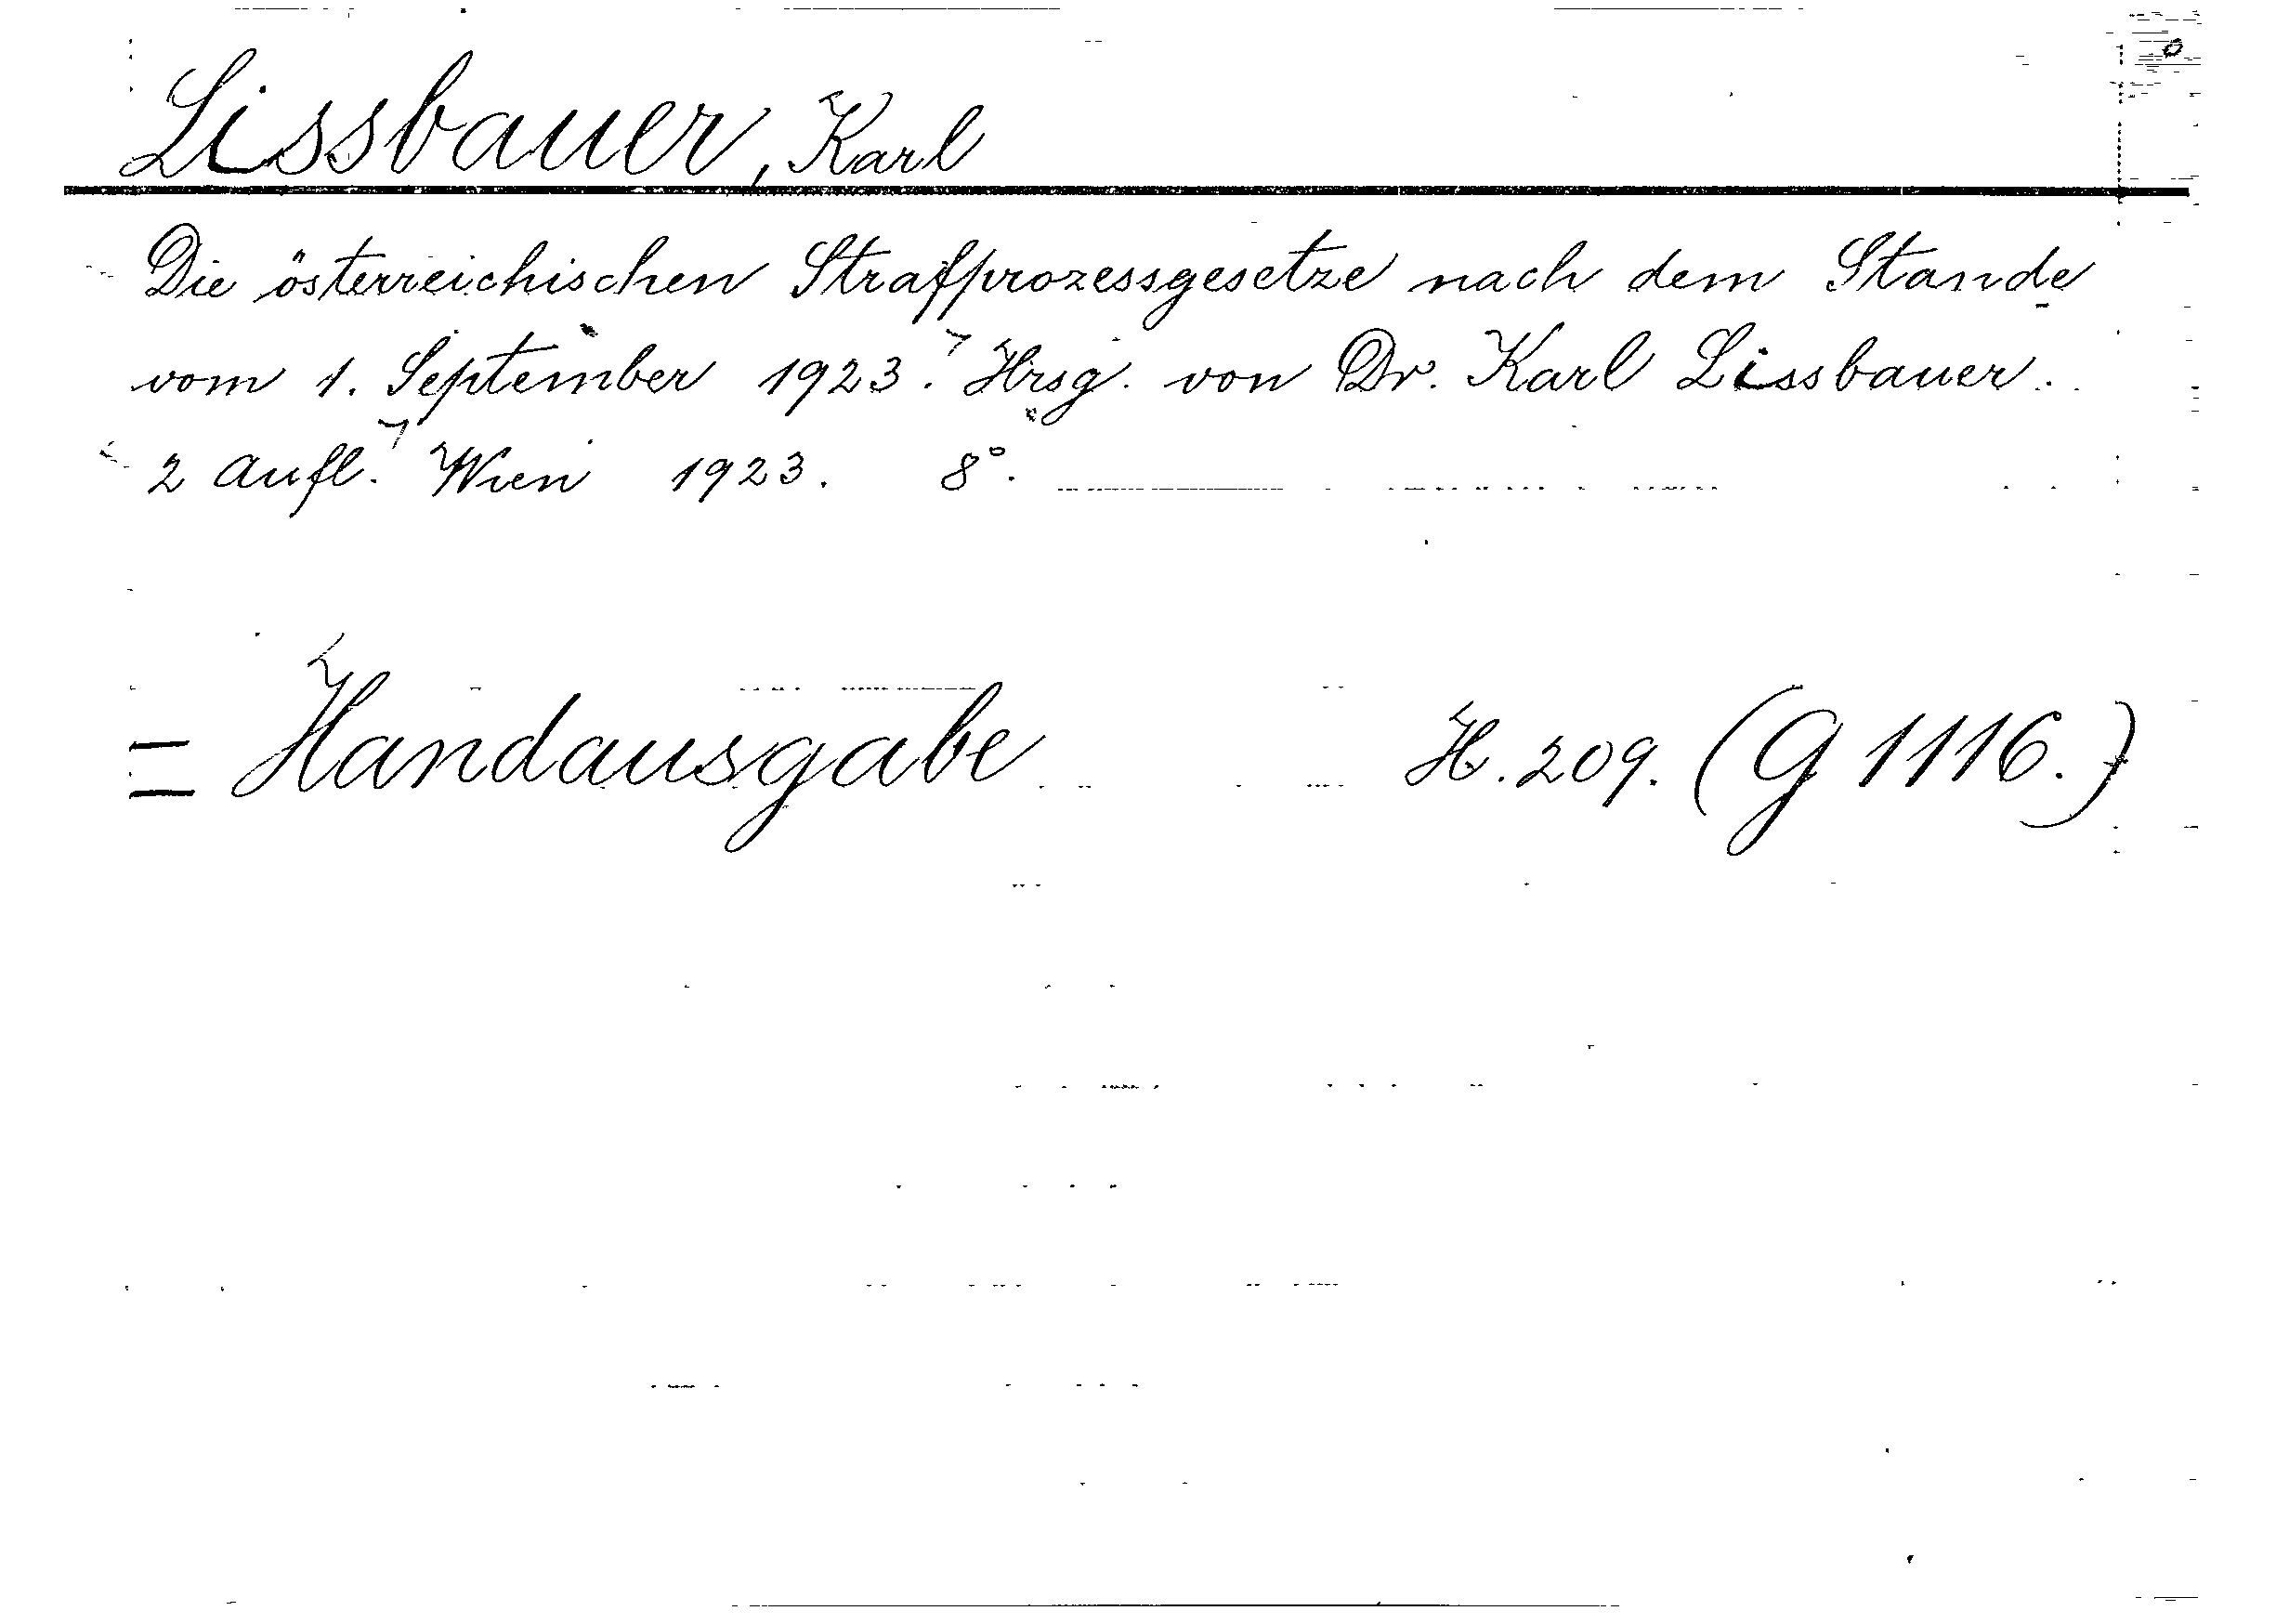 Lissbauer, Karl
Die österreichischen Strafprozessgesetze nach dem Stande
vom 1. September 1923. Hrsg. von Dr. Karl Lissbauer.
2 Aufl. Wien 1923. 8°.
= Handausgabe H. 209. (G 1116.)